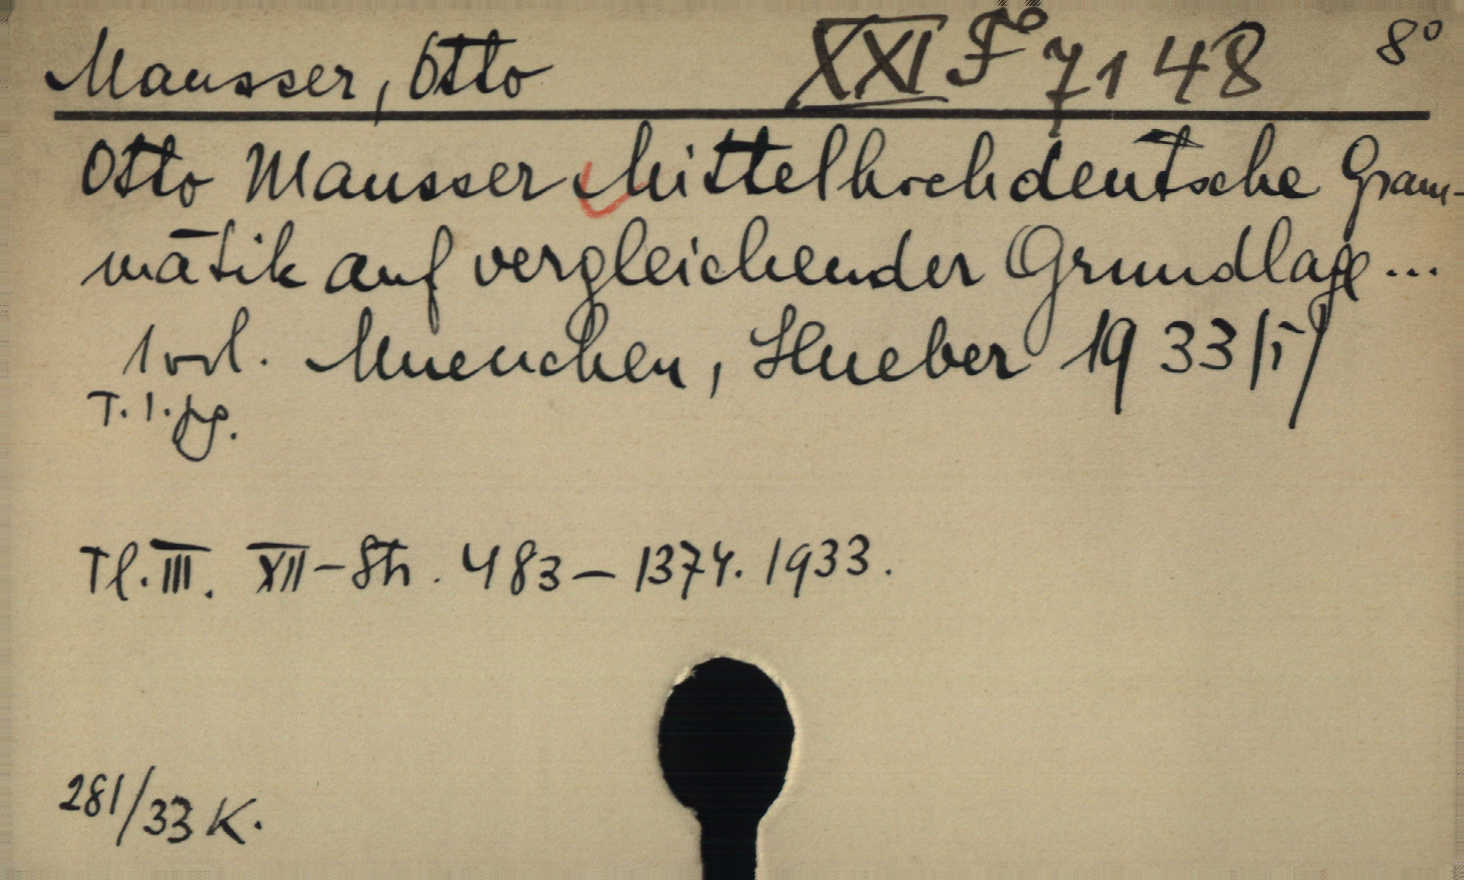 Mausser, Otto XXI F° 7148 8°
Otto Mausser Mittelhochdeutsche Gram-
matik auf vergleichender Grundlage ...
1 vol. Muenchen, Hueber 1933/
T. 1.
Tl. III. XII- 483-1374. 1933.
281/33 K.